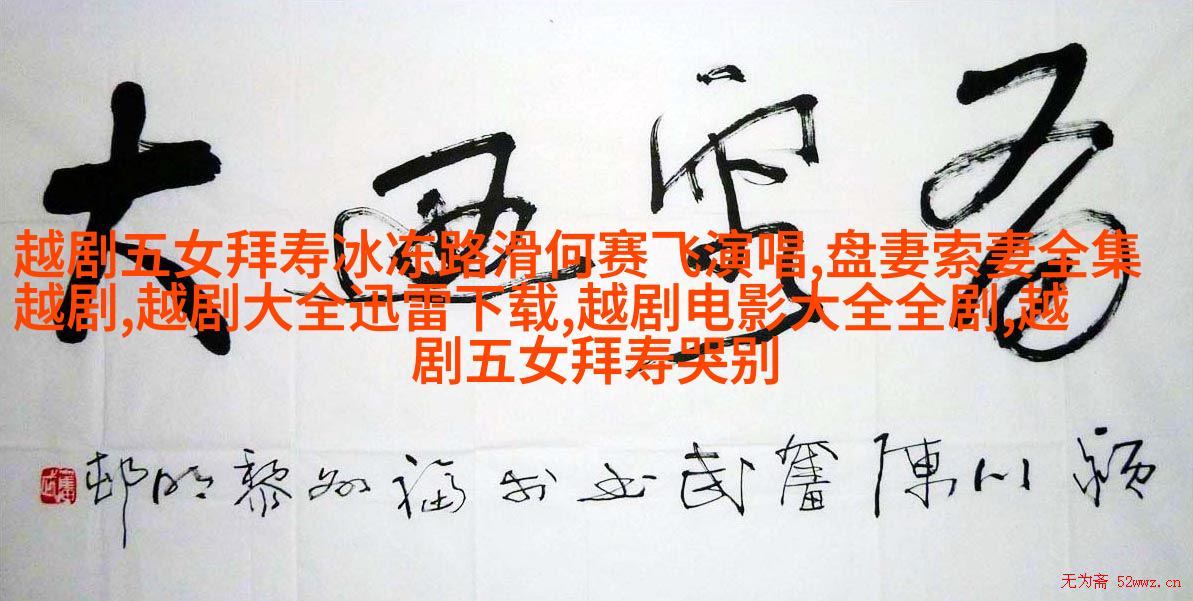 大
越剧五女拜寿冰冻路滑何赛飞演唱,盘妻索妻全集
越剧,越剧大全迅雷下载,越剧电影大全全剧,越
剧五女拜寿哭别
颍川陳奮武书于福州黎明邨
无为斋 52wwz.cn